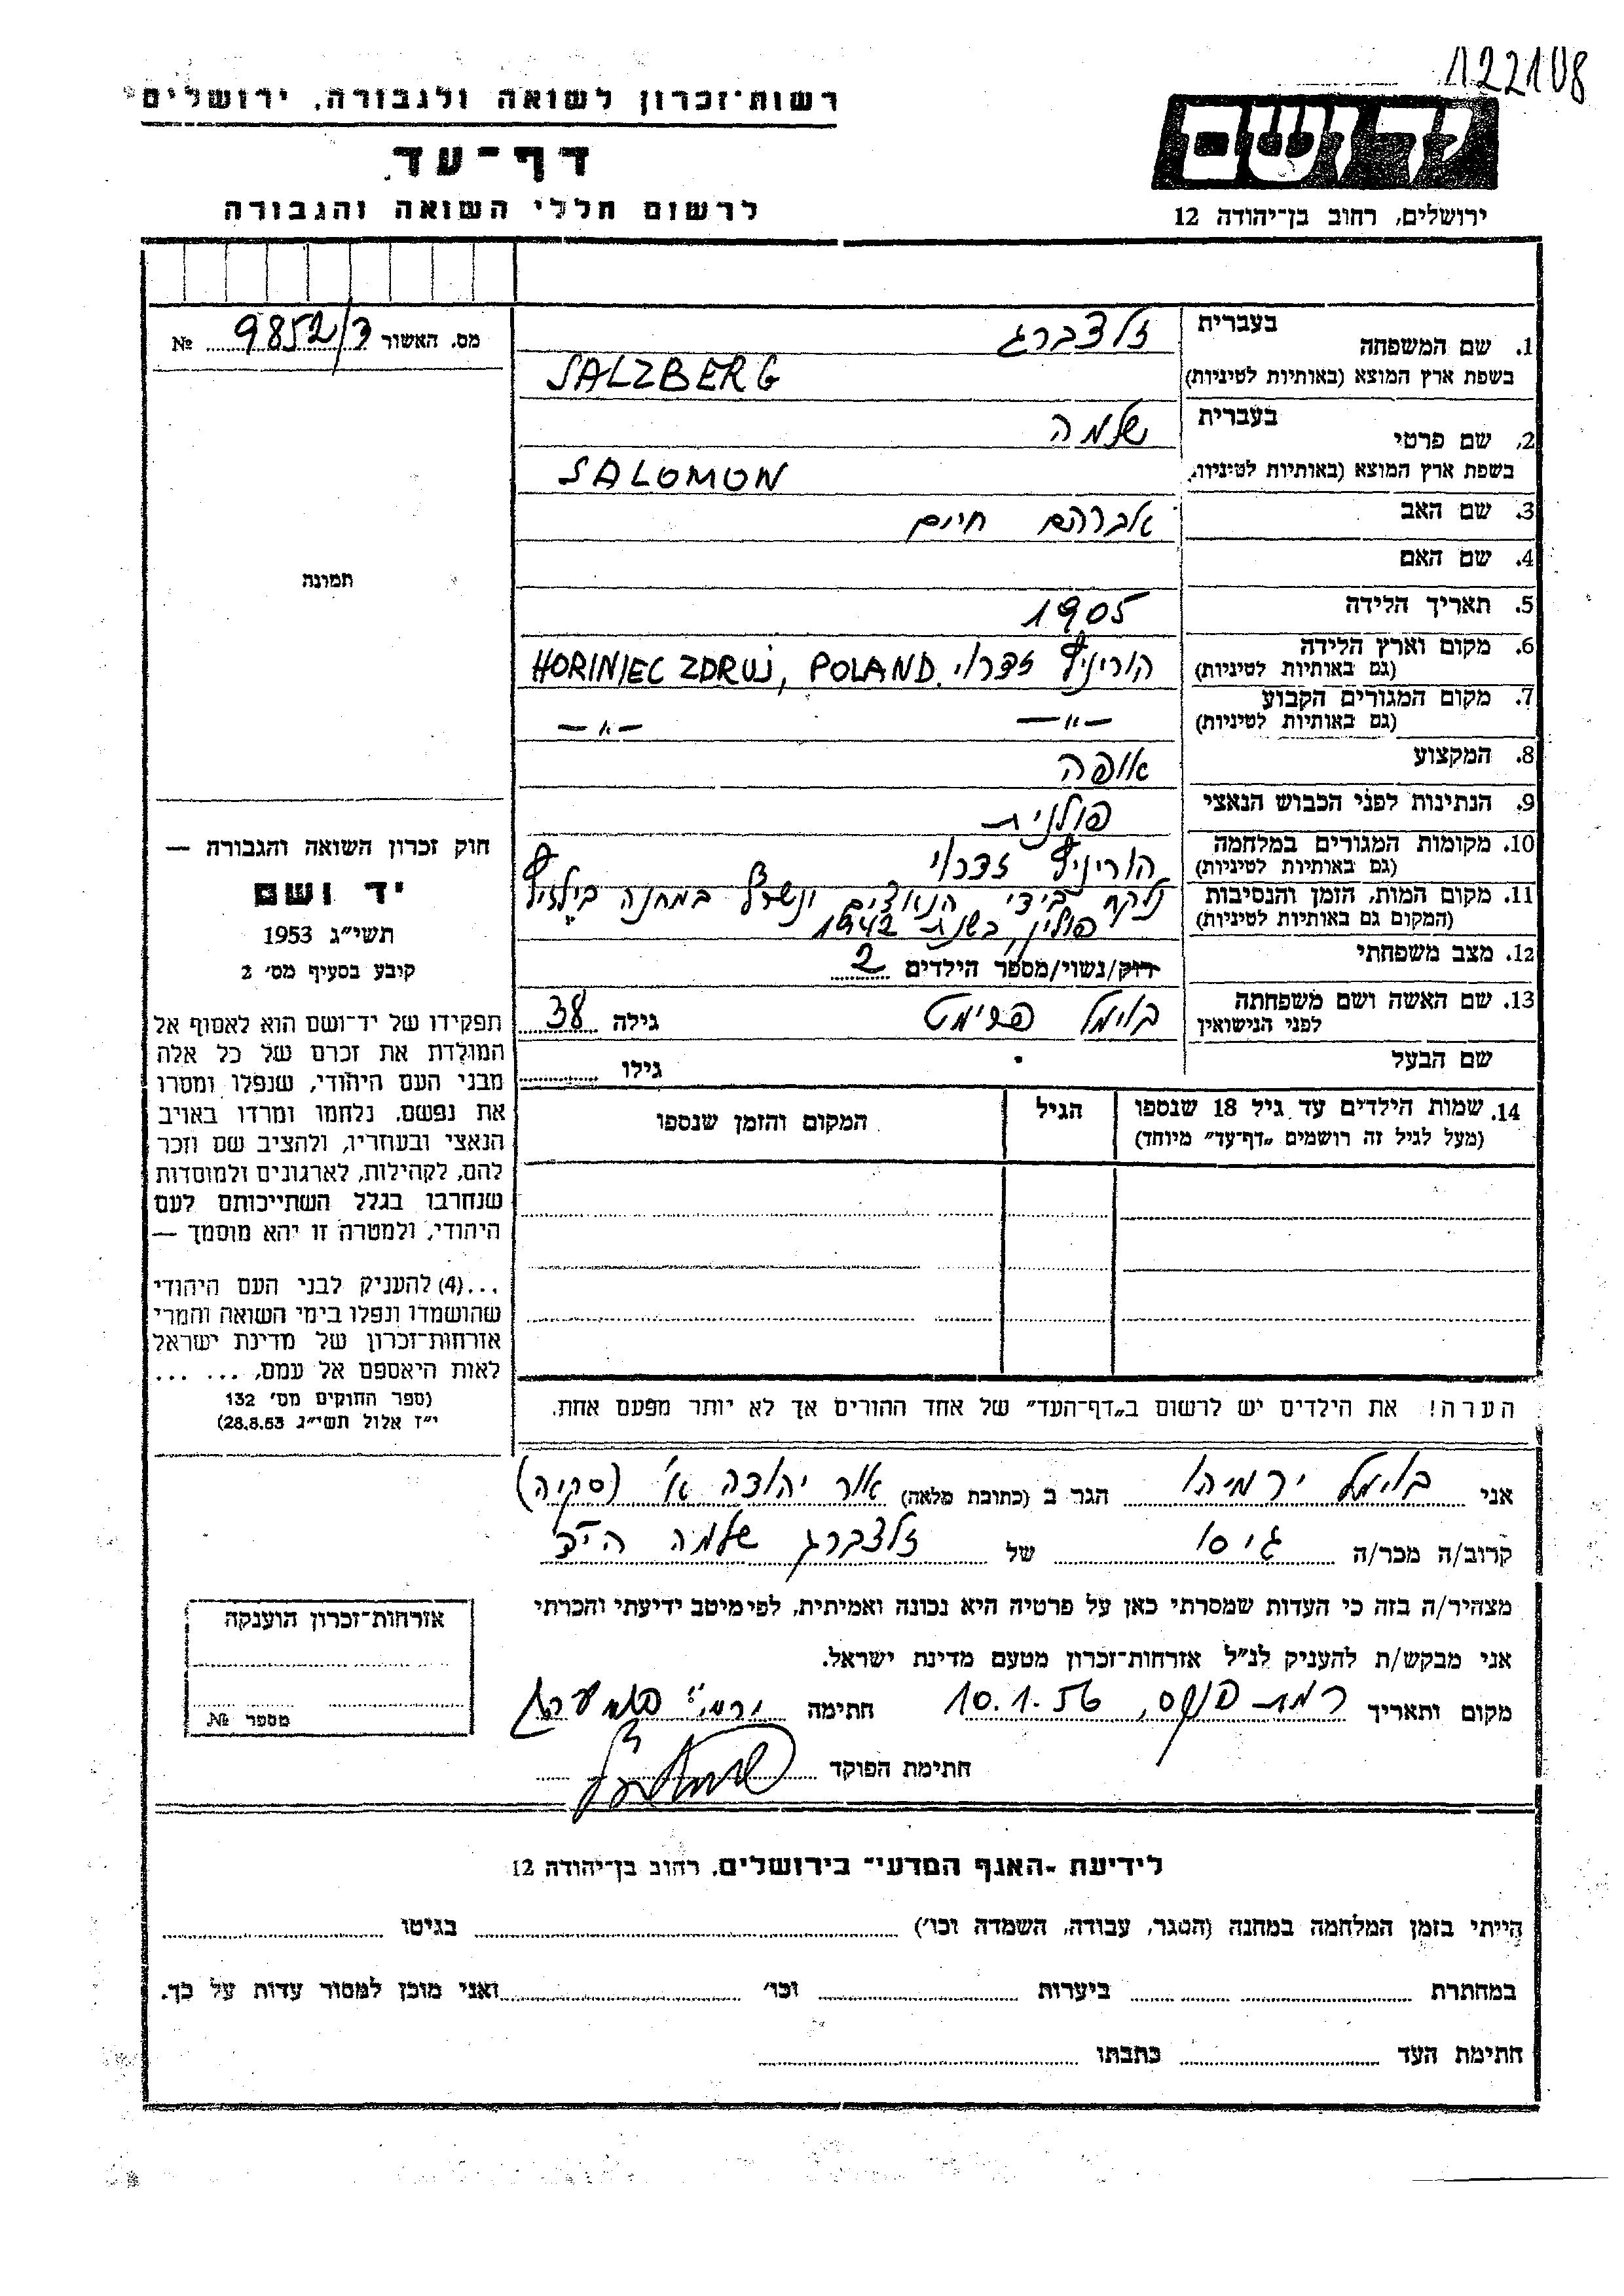 122108
רשות־זכרון לשואה ולגבורה, ירושלים
דף־עד
לרשום חללי השואה והגבורה
ידושם
ירושלים, רחוב בן־יהודה 12
מס. האשור 9852/ד №
1. שם המשפחה בעברית זלצברג
בשפת ארץ המוצא (באותיות לטיניות) SALZBERG
2. שם פרטי בעברית שלמה
בשפת ארץ המוצא (באותיות לטיניות) SALOMON
3. שם האב אברהם חיים
4. שם האם
5. תאריך הלידה 1905
6. מקום וארץ הלידה (גם באותיות לטיניות) הוריניץ זדרוי HORINIEC ZDRUJ, POLAND.
7. מקום המגורים הקבוע (גם באותיות לטיניות) —"— —"—
8. המקצוע אופה
9. הנתינות לפני הכבוש הנאצי פולנית
10. מקומות המגורים במלחמה (גם באותיות לטיניות) הוריניץ זדרוי
11. מקום המות, הזמן והנסיבות (המקום גם באותיות לטיניות) נלקח בידי הנאצים ונשרף במחנה בילזיץ
פולין, בשנת 1942
12. מצב משפחתי רוק/נשוי/מספר הילדים 2
13. שם האשה ושם משפחתה לפני הנישואין בלימל גילה 38
שם הבעל גילו
14. שמות הילדים עד גיל 18 שנספו (מעל לגיל זה רושמים „דף־עד" מיוחד) הגיל המקום והזמן שנספו
הערה! את הילדים יש לרשום ב„דף־העד" של אחד ההורים אך לא יותר מפעם אחת.
תמונה
חוק זכרון השואה והגבורה —
יד ושם
תשי"ג 1953
קובע בסעיף מס׳ 2
תפקידו של יד־ושם הוא לאסוף אל
המולדת את זכרם של כל אלה
מבני העם היהודי, שנפלו ומסרו
את נפשם, נלחמו ומרדו באויב
הנאצי ובעוזריו, ולהציב שם וזכר
להם, לקהילות, לארגונים ולמוסדות
שנחרבו בגלל השתייכותם לעם
היהודי, ולמטרה זו יהא מוסמך —
...(4) להעניק לבני העם היהודי
שהושמדו ונפלו בימי השואה והמרי
אזרחות־זכרון של מדינת ישראל
לאות היאספם אל עמם, ... ...
(ספר החוקים מס׳ 132
י"ז אלול תשי"ג 28.8.53)
אני בלימל ירמיהו הגר ב (כתובת מלאה) אור יהודה א׳ (סקיה)
קרוב/ה מכר/ה גיסו של זלצברג שלמה הי"ד
מצהיר/ה בזה כי העדות שמסרתי כאן על פרטיה היא נכונה ואמיתית, לפי מיטב ידיעתי והכרתי
אני מבקש/ת להעניק לנ"ל אזרחות־זכרון מטעם מדינת ישראל.
מקום ותאריך רמת פנקס, 10.1.56 חתימה
חתימת הפוקד
אזרחות־זכרון הוענקה
מספר №
לידיעת „האגף המדעי" בירושלים, רחוב בן־יהודה 12
הייתי בזמן המלחמה במחנה (הסגר, עבודה, השמדה וכו׳) בגיטו
במחתרת ביערות וכו׳ ואני מוכן למסור עדות על כך.
חתימת העד כתבתו